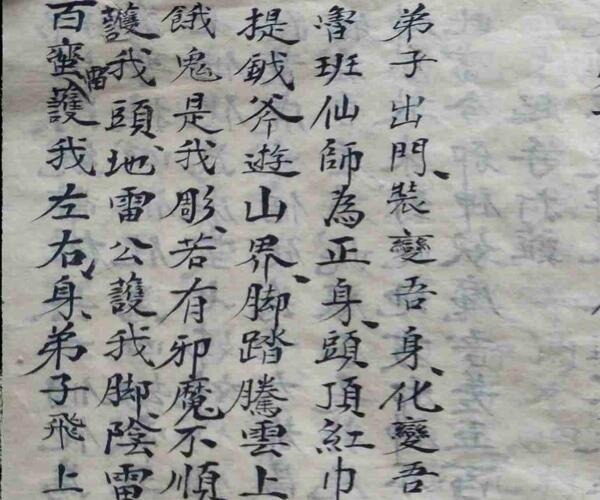 弟子出門、裝變吾身、化變吾
魯班仙師為正身、頭頂紅巾
提鉞斧遊山界、脚踏騰雲上
餓鬼是我彫、若有邪魔不順
護我頭、地雷公護我脚、陰雷
百蛮雷護我左右身、弟子飛上